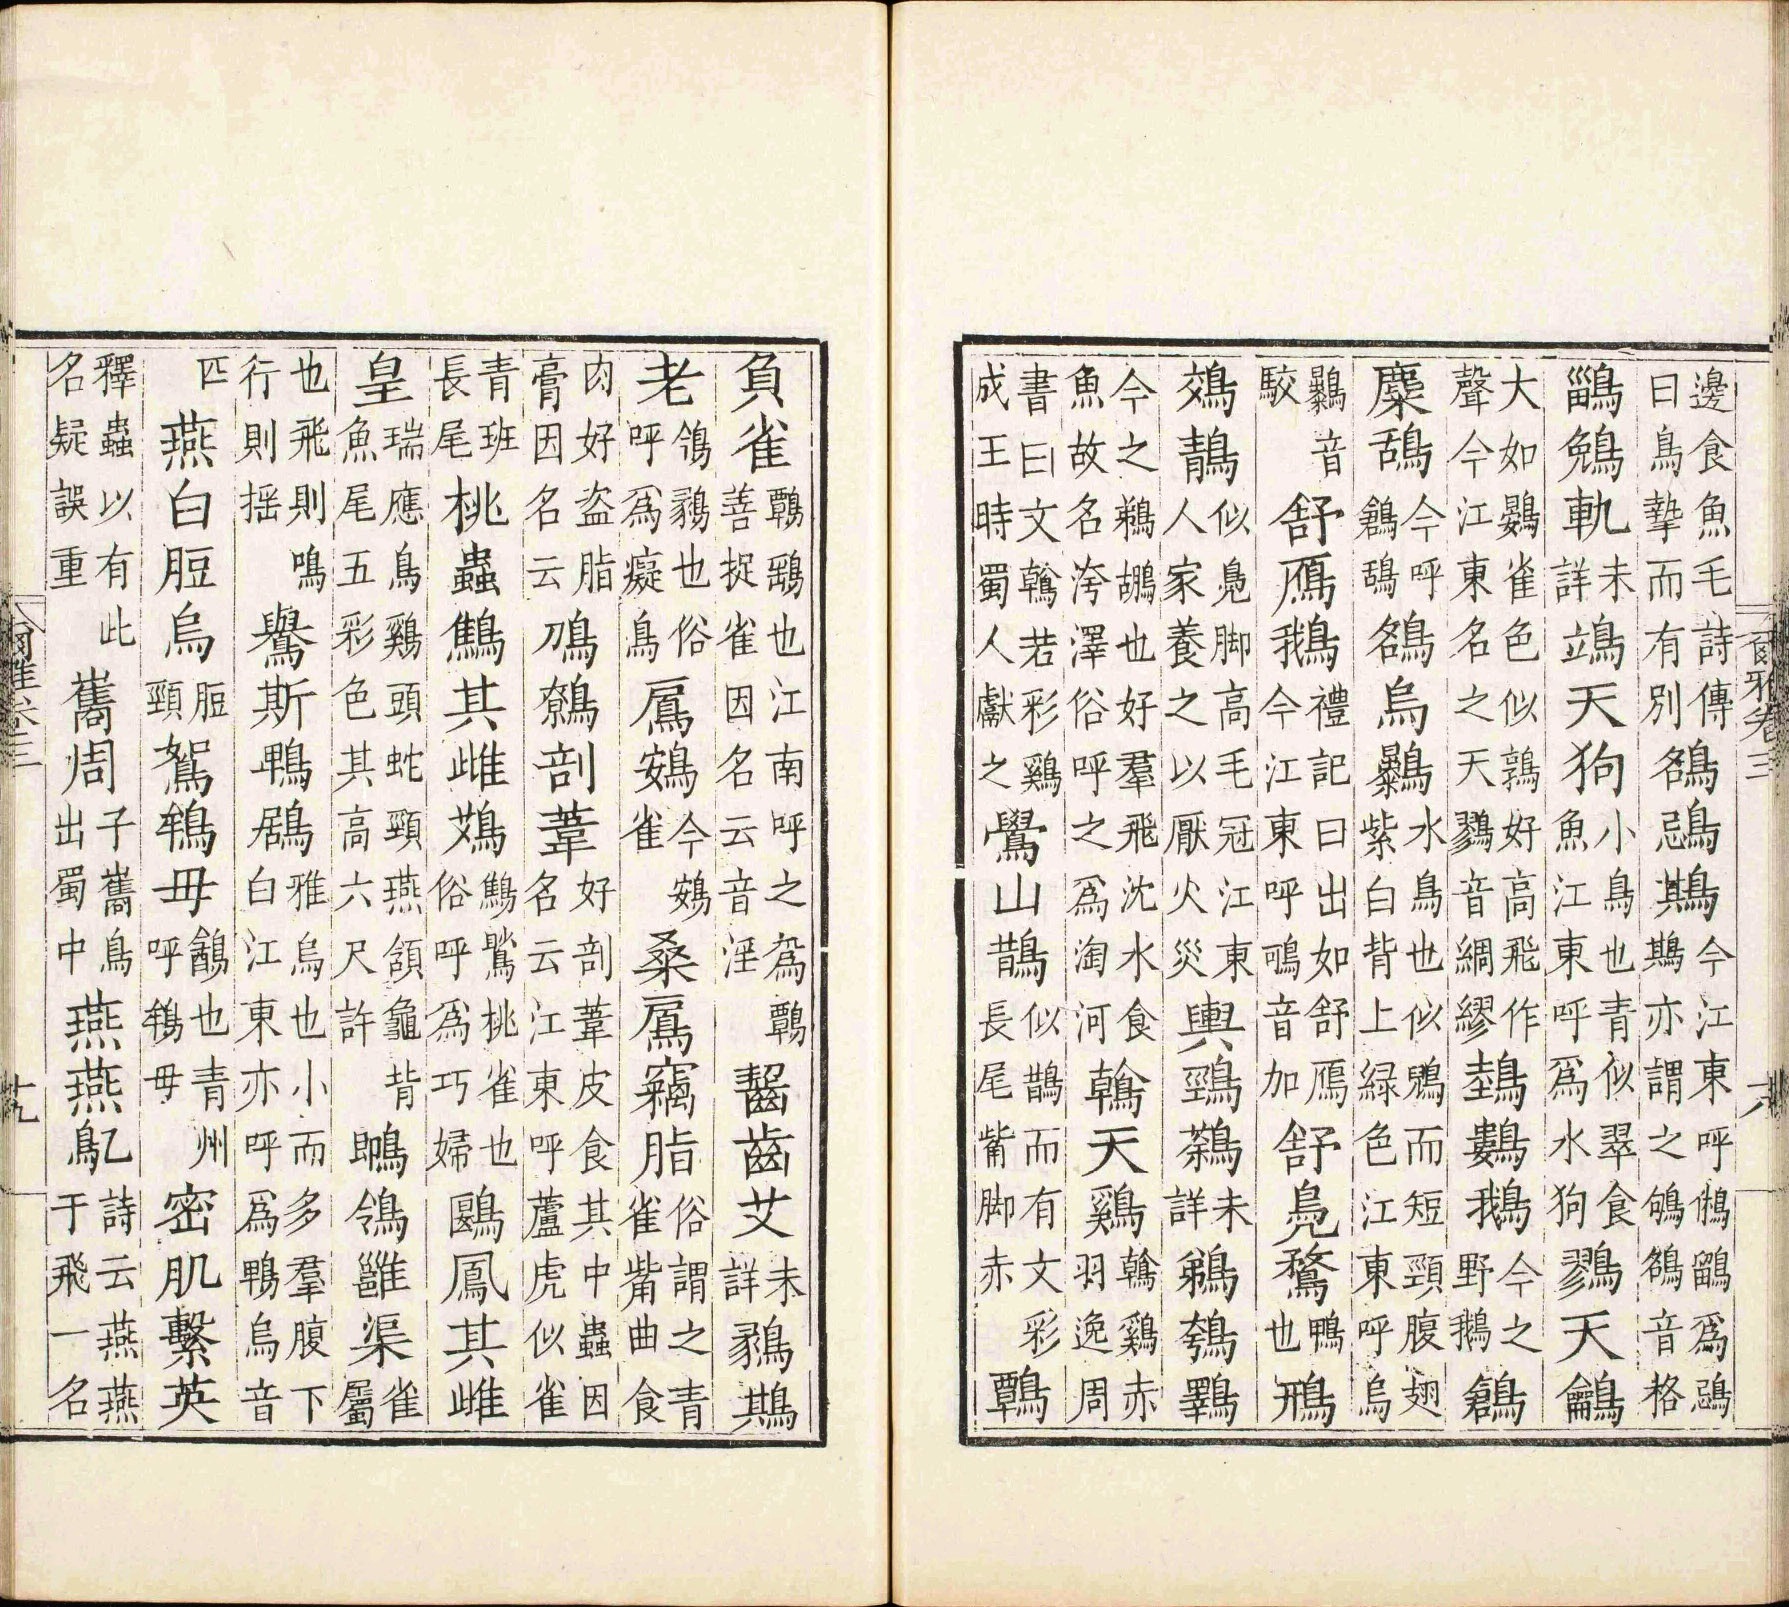 邊食魚毛詩傳曰鳥摯而有別鵅鵋鶀今江東呼鵂鶹爲鵋鶀亦謂之鴝鵅音格
鶅鵵軌未詳鴗天狗小鳥也青似翠食魚江東呼爲水狗鷚天鸙
大如鷃雀色似鶉好高飛作聲今江東名之天鷚音綢繆鵱鷜鵝今之野鵝鶬
麋鴰今呼鶬鴰鵅烏鸔水鳥也似鶂而短頸腹翅紫白背上緑色江東呼烏
鸔音駮舒鴈鵝禮記曰出如舒鴈今江東呼鴚音加舒鳧鶩鴨也鳽
鵁鶄似鳧脚高毛冠江東人家養之以厭火災輿鵛鷋未詳鵜鴮鸅
今之鵜鶘也好羣飛沈水食魚故名洿澤俗呼之爲淘河鶾天鷄鶾鷄赤羽逸周
書曰文鶾若彩鷄成王時蜀人獻之鷽山鵲似鵲而有文彩長尾觜脚赤鷣
負雀鷣鷂也江南呼之爲鷣善捉雀因名云音淫齧齒艾未詳鶨鶀
老鳹鶨也俗呼爲癡鳥鳸鴳今鴳雀桑鳸竊脂俗謂之青雀觜曲食
肉好盗脂膏因名云鳭鷯剖葦好剖葦皮食其中蟲因名云江東呼蘆虎似雀
青班長尾桃蟲鷦其雌鴱鷦䳟桃雀也俗呼爲巧婦鶠鳳其雌
皇瑞應鳥鷄頭蛇頸燕頷龜背魚尾五彩色其高六尺許䳭鴒雝渠雀屬
也飛則鳴行則揺鸒斯鵯鶋雅烏也小而多羣腹下白江東亦呼爲鵯烏音
匹燕白脰烏脰頸鴽鴾毋鶕也青州呼鴾毋密肌繫英
釋蟲以有此名疑誤重巂周子巂鳥出蜀中燕燕鳦詩云燕燕于飛一名